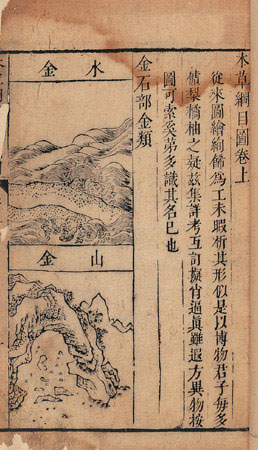 本草綱目圖卷上
從來圖繪絢俻為工未暇析其形似是以博物君子每多
棃橘柚之疑茲集詳考互訂擬肖逼眞雖遐方異物按
圖可索奚第多識其名已也
金石部金類
水金
山金